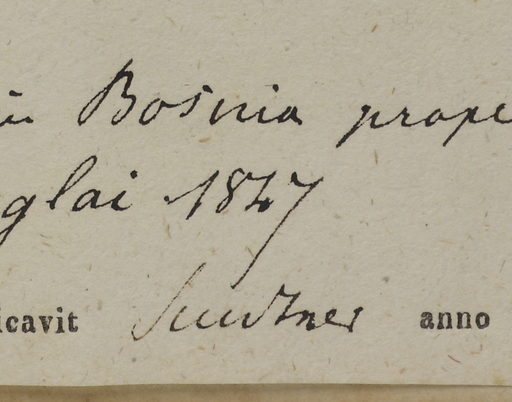 in Bosnia prope
glai 1847
icavit Sendtner anno